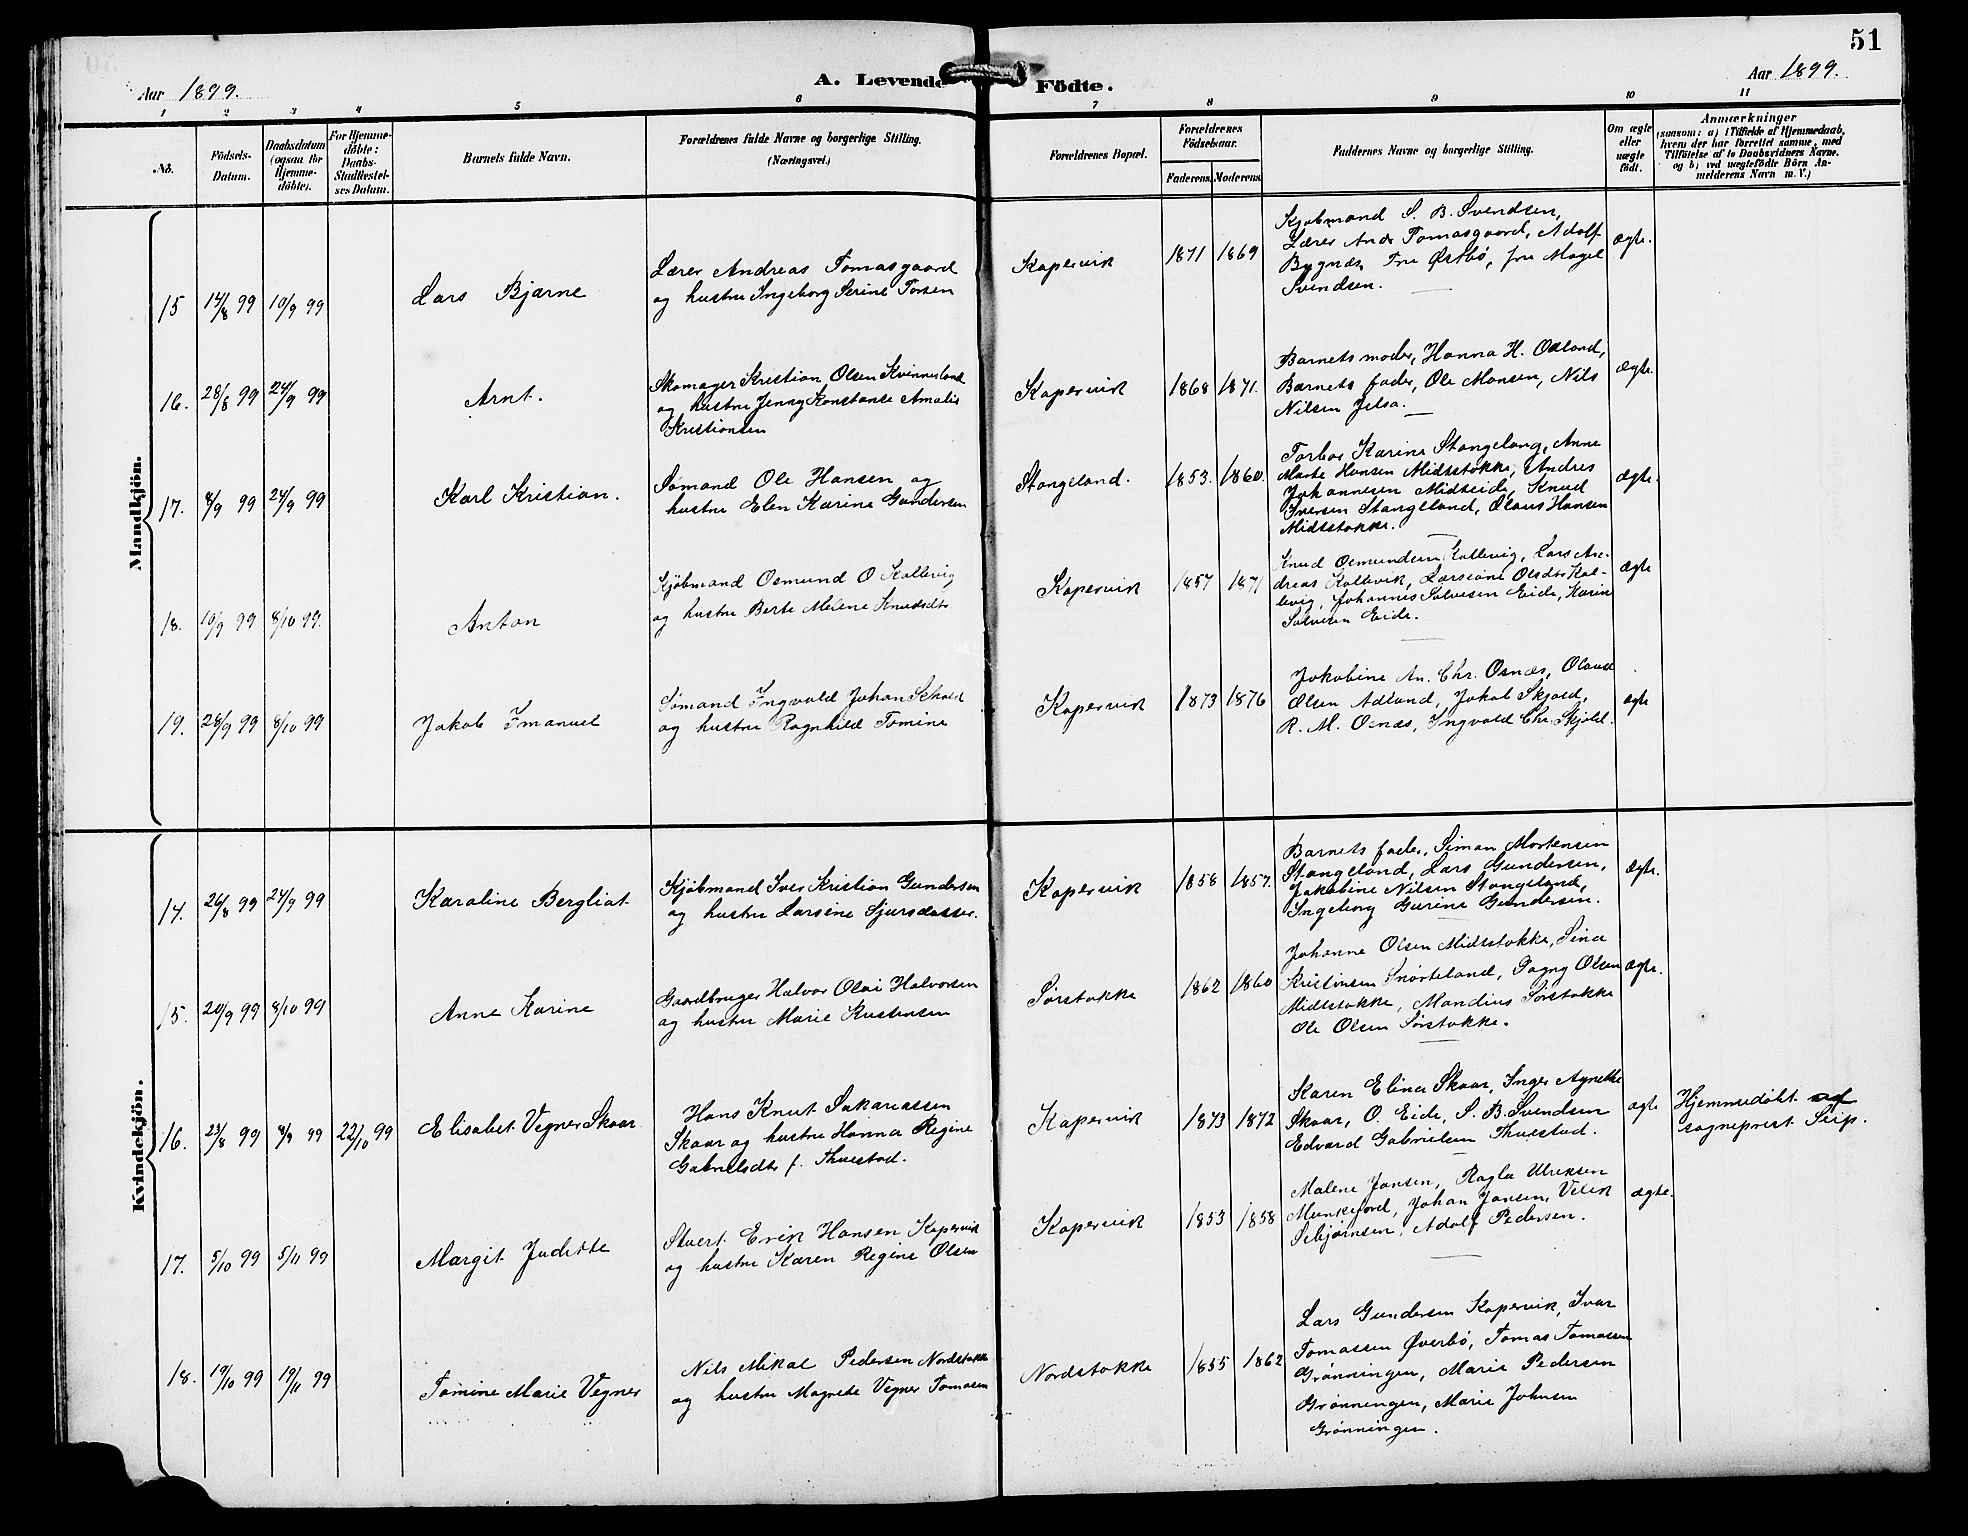 51
Aar 1899.
A. Levende Födte.
Aar 1899.
1 2 3 4 5 6 7 8 9 10 11
No.
Födsels-Datum.
Daabsdatum (ogsaa for Hjemme-döbte).
For Hjemme-döbte: Daabs-Stadfæstel-ses Datum.
Barnets fulde Navn.
Forældrenes fulde Navne og borgerlige Stilling.
(Næringsvei.)
Forældrenes Bopæl.
Forældrenes Födselsaar.
Faderens. Moderens.
Faddernes Navne og borgerlige Stilling.
Om ægte eller uægte födt.
Anmærkninger
(saasom: a) i Tilfælde af Hjemmedaab,
hvem der har forrettet samme, med
Tilföielse af to Daabsvidners Navne.
og b) ved uægtefödte Börn An-
melderens Navn m. V.)
Mandkjön.
15 14/8 99 10/9 99
Lars Bjarne
Lærer Andreas Tomasgaard
og hustru Ingeborg Serine Torsen
Kopervik 1871 1869
Kjøbmand S. B. Svendsen,
Lærer Andr Tomasgaard, Adolf
Bygnes, Fru Østbö, fru Magel
Svendsen.
ægte.
16. 28/8 99 24/9 99
Arnt.
Skomager Kristian Olsen Kvinnesland
og hustru Jenny Konstanse Amalie
Kristiansen
Kopervik 1868 1871.
Barnets moder, Hanna H. Odland,
Barnets fader, Ole Monsen, Nils
Nilsen Jelsa.
ægte.
17. 8/9 99 24/9 99
Karl Kristian.
Sømand Ole Hansen og
hustru Elen Karine Gundersen
Stangeland. 1853. 1860.
Torbor Karine Stangeland, Anne
Marte Hansen Midtstokke, Andres
Johannesen Midteide, Knud
Iversen Stangeland, Olaus Hansen
Midtstokke.
ægte.
18. 10/9 99 8/10 99.
Anton
Kjøbmand Osmund O Kallevig
og hustru Berte Melene Knudsdtr
Kopervik 1857 1871
Knud Osmundsen Kallevig, Lars An-
dreas Kallevik, Larsine Olsdtr Kal-
levig, Johannes Salvesen Eide, Karin
Salvesen Eide.
ægte
19. 28/9 99 8/10 99
Jakob Imanuel
Sømand Ingvald Johan Skjold
og hustru Ragnhild Tomine
Kopervik 1873 1876
Jakobine An. Chr. Osnæs, Olaus
Olsen Adland, Jakob Skjold,
R. M. Osnæs, Ingvald Chr. Skjold.
ægte
Kvindekjön.
14. 26/8 99 24/9 99
Karoline Bergliot
Kjøbmand Iver Kristian Gundersen
og hustru Larsine Sjursdatter.
Kopervik 1858 1857.
Barnets fader, Simon Mortensen
Stangeland, Lars Gundersen,
Jakobine Nilsen Stangeland,
Ingeborg Gurine Gundersen.
ægte.
15. 20/9 99 8/10 99
Anne Karine
Gaardbruger Halvor Olai Halvorsen
og hustru Marie Kristensen
Sørstokke 1862 1860
Johanne Olsen Midtstokke, Sina
Kristensen Snørteland, Dagny Olsen
Midtstokke, Mandius Sørstokke
Ole Olsen Sørstokke.
ægte.
16. 23/8 99 8/9 99 22/10 99
Elisabet Vegner Skaar
Hans Knut Sakariassen
Skaar og hustru Hanna Regine
Gabrielsdtr f. Thuestad.
Kopervik 1873 1872
Karen Elina Skaar, Inger Agnethe
Skaar, O. Eide, S. B. Svendsen
Edvard Gabrielsen Thuestad.
ægte
Hjemmedøbt af
sogneprest Seip.
17. 5/10 99 5/11 99
Margit Juditte
Stuert Erik Hansen Kopervik
og hustru Karen Regine Olsen
Kopervik 1853 1858
Malene Jansen, Ragla Ulriksen
Munkejord, Johan Jansen,
Sebjørnsen, Adolf Pedersen.
ægte.
18. 19/10 99 19/11 99
Tomine Marie Vegner
Nils Mikal Pedersen Nordstokke
og hustru Magrete Vegner Tomasen
Nordstokke 1855 1862
Lars Gundersen Kopervik, Ivar
Tomassen Øverbö, Tomas Tomassen
Grønningen, Marie Pedersen
Grønningen, Marie Johnsen
Grønningen.